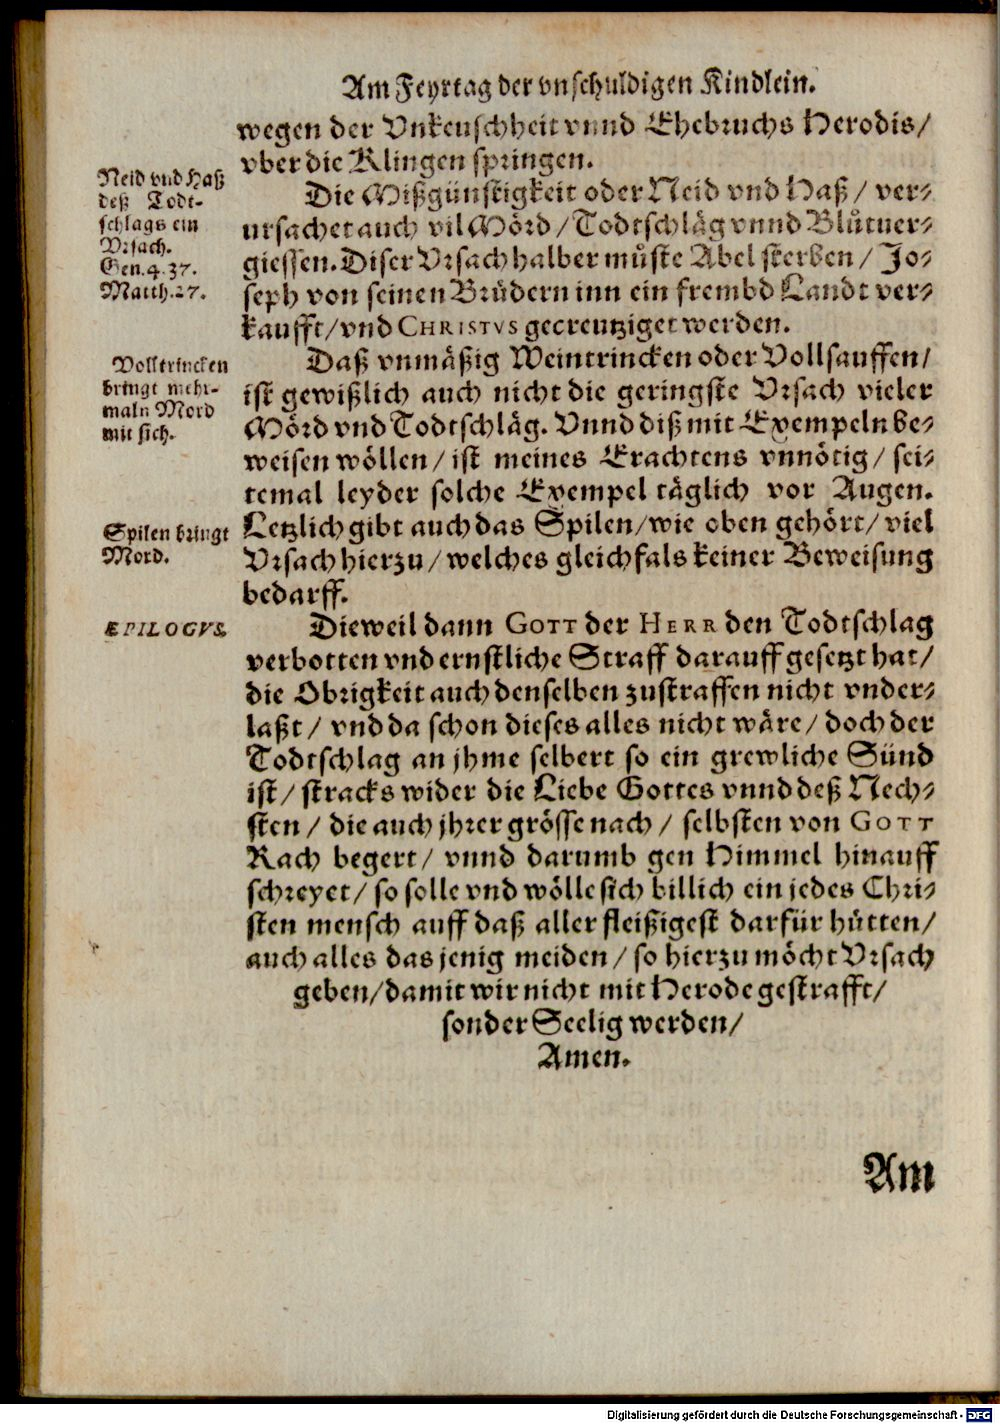 Am Feyrtag der vnschuldigen Kindlein.
wegen der Vnkeuschheit vnnd Ehebruchs Herodis/
vber die Klingen springen.
Neid vnd Haß
deß Todt-
schlags ein
Vrsach.
Gen. 4. 37.
Matth. 27.
Die Mißgünstigkeit oder Neid vnd Haß / ver-
ursachet auch vil Mörd / Todtschläg vnnd Blůtuer-
giessen. Diser Vrsach halber můste Abel sterben / Jo-
seph von seinen Brüdern inn ein frembd Landt ver-
kaufft/ vnd CHRISTVS gecreutziget werden.
Volltrincken
bringt mehr-
maln Mord
mit sich.
Daß vnmäßig Weintrincken oder Vollsauffen/
ist gewißlich auch nicht die geringste Vrsach vieler
Mörd vnd Todtschläg. Vnnd diß mit Exempeln be-
weisen wöllen / ist meines Erachtens vnnötig / sei-
temal leyder solche Exempel täglich vor Augen.
Spilen bringt
Mord.
Letzlich gibt auch das Spilen/ wie oben gehört/ viel
Vrsach hierzu / welches gleichfals keiner Beweisung
bedarff.
ÆPILOGVS.
Dieweil dann GOTT der HERR den Todtschlag
verbotten vnd ernstliche Straff darauff gesetzt hat/
die Obrigkeit auch denselben zustraffen nicht vnder-
laßt / vnd da schon dieses alles nicht wäre / doch der
Todtschlag an jhme selbert so ein grewliche Sünd
ist / stracks wider die Liebe Gottes vnnd deß Nech-
sten / die auch jhrer grösse nach / selbsten von GOTT
Rach begert / vnnd darumb gen Himmel hinauff
schreyet / so solle vnd wölle sich billich ein jedes Chri-
sten mensch auff daß aller fleißigest darfür hůtten/
auch alles das jenig meiden / so hierzu möcht Vrsach
geben/ damit wir nicht mit Herode gestrafft/
sonder Seelig werden/
Amen.
Am
Digitalisierung gefördert durch die Deutsche Forschungsgemeinschaft - DFG